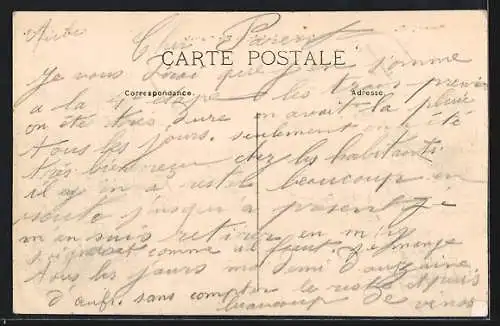 Cher Parent
CARTE POSTALE
Correspondance. Adresse.
Je vous dirai que j'en somme
a la 4 etape les trois premiere
on été tres dure on avait la pluie
tous les jours. seulement on a été
tres bien reçu chez les habitants
il y en a resté beaucoup en
route jusqu'a présent je
m'en suis retirer en m'y
comme il faut je mange
tous les jours ma demi douzaine
d'œuf. sans compter le reste et puis
beaucoup de vinos